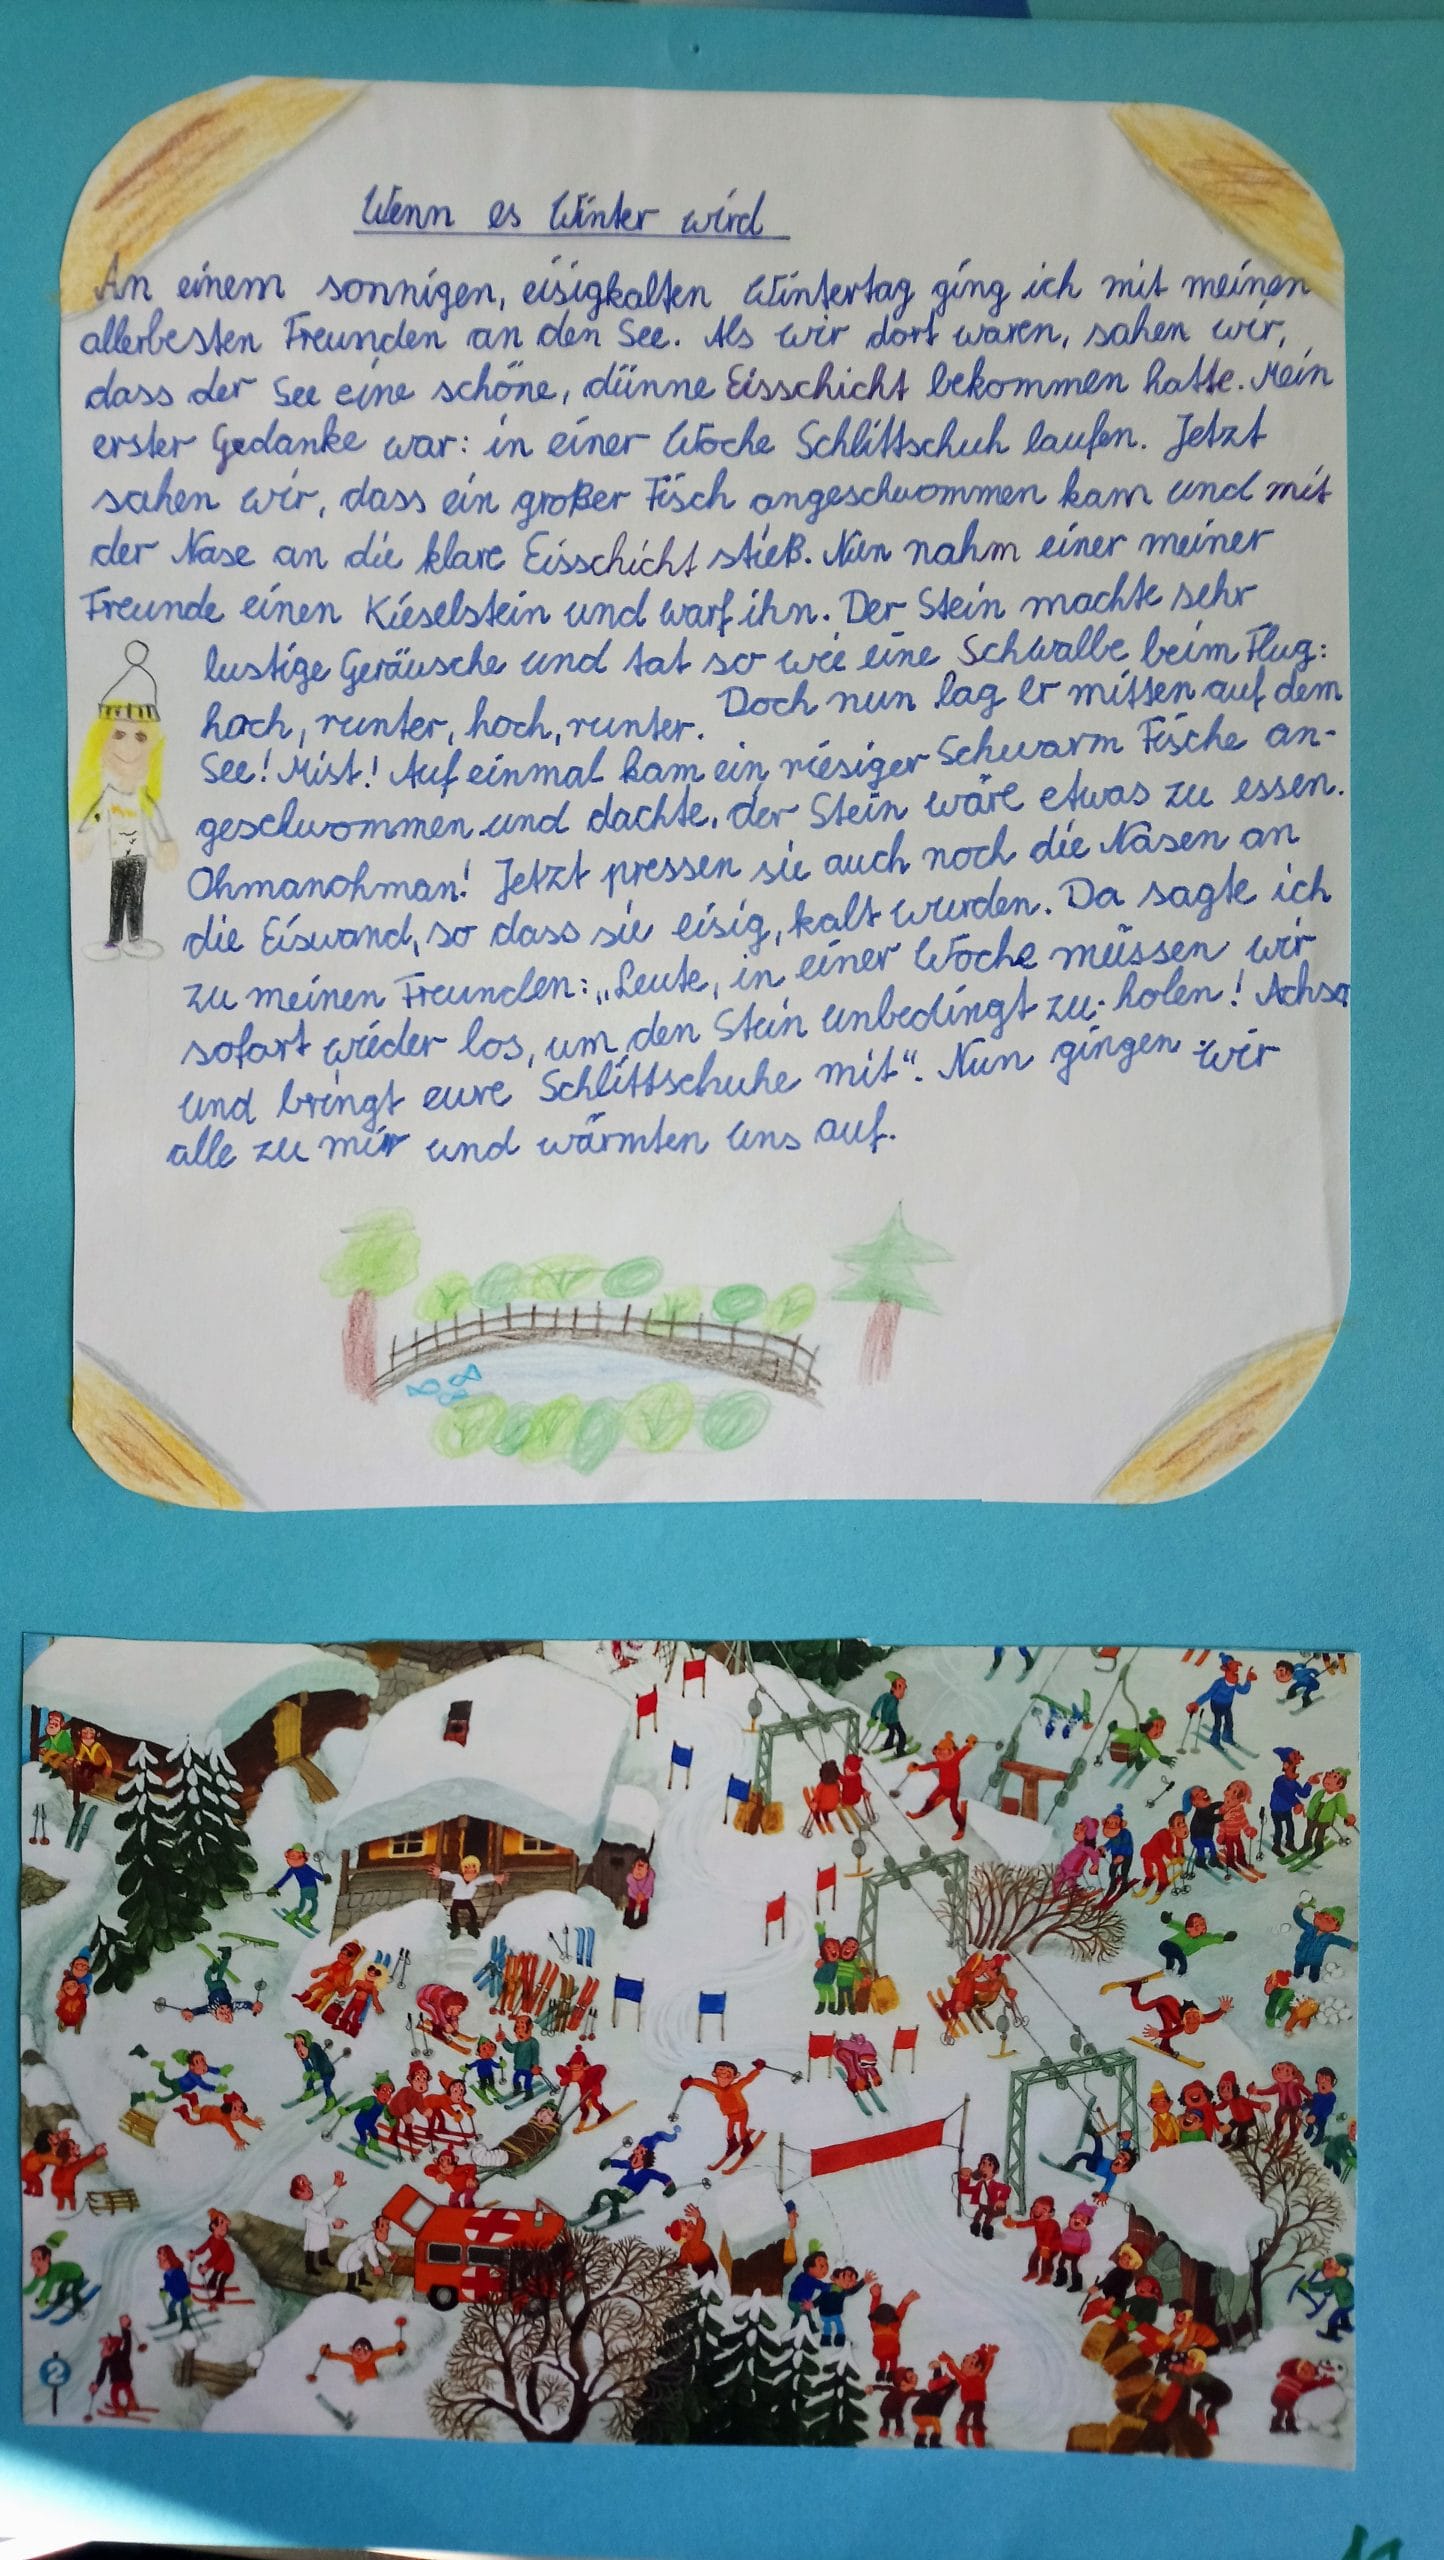 Wenn es Winter wird
An einem sonnigen, eisigkalten Wintertag ging ich mit meinen
allerbesten Freunden an den See. Als wir dort waren, sahen wir,
dass der See eine schöne, dünne Eisschicht bekommen hatte. Mein
erster Gedanke war: in einer Woche Schlittschuh laufen. Jetzt
sahen wir, dass ein großer Fisch angeschwommen kam und mit
der Nase an die klare Eisschicht stieß. Nun nahm einer meiner
Freunde einen Kieselstein und warf ihn. Der Stein machte sehr
lustige Geräusche und tat so wie eine Schwalbe beim Flug:
hoch, runter, hoch, runter. Doch nun lag er mitten auf dem
See! Mist! Auf einmal kam ein riesiger Schwarm Fische an-
geschwommen und dachte, der Stein wäre etwas zu essen.
Ohmanohman! Jetzt pressen sie auch noch die Nasen an
die Eiswand, so dass sie eisig, kalt wurden. Da sagte ich
zu meinen Freunden: „Leute, in einer Woche müssen wir
sofort wieder los, um den Stein unbedingt zu holen! Achso
und bringt eure Schlittschuhe mit“. Nun gingen wir
alle zu mir und wärmten uns auf.
2